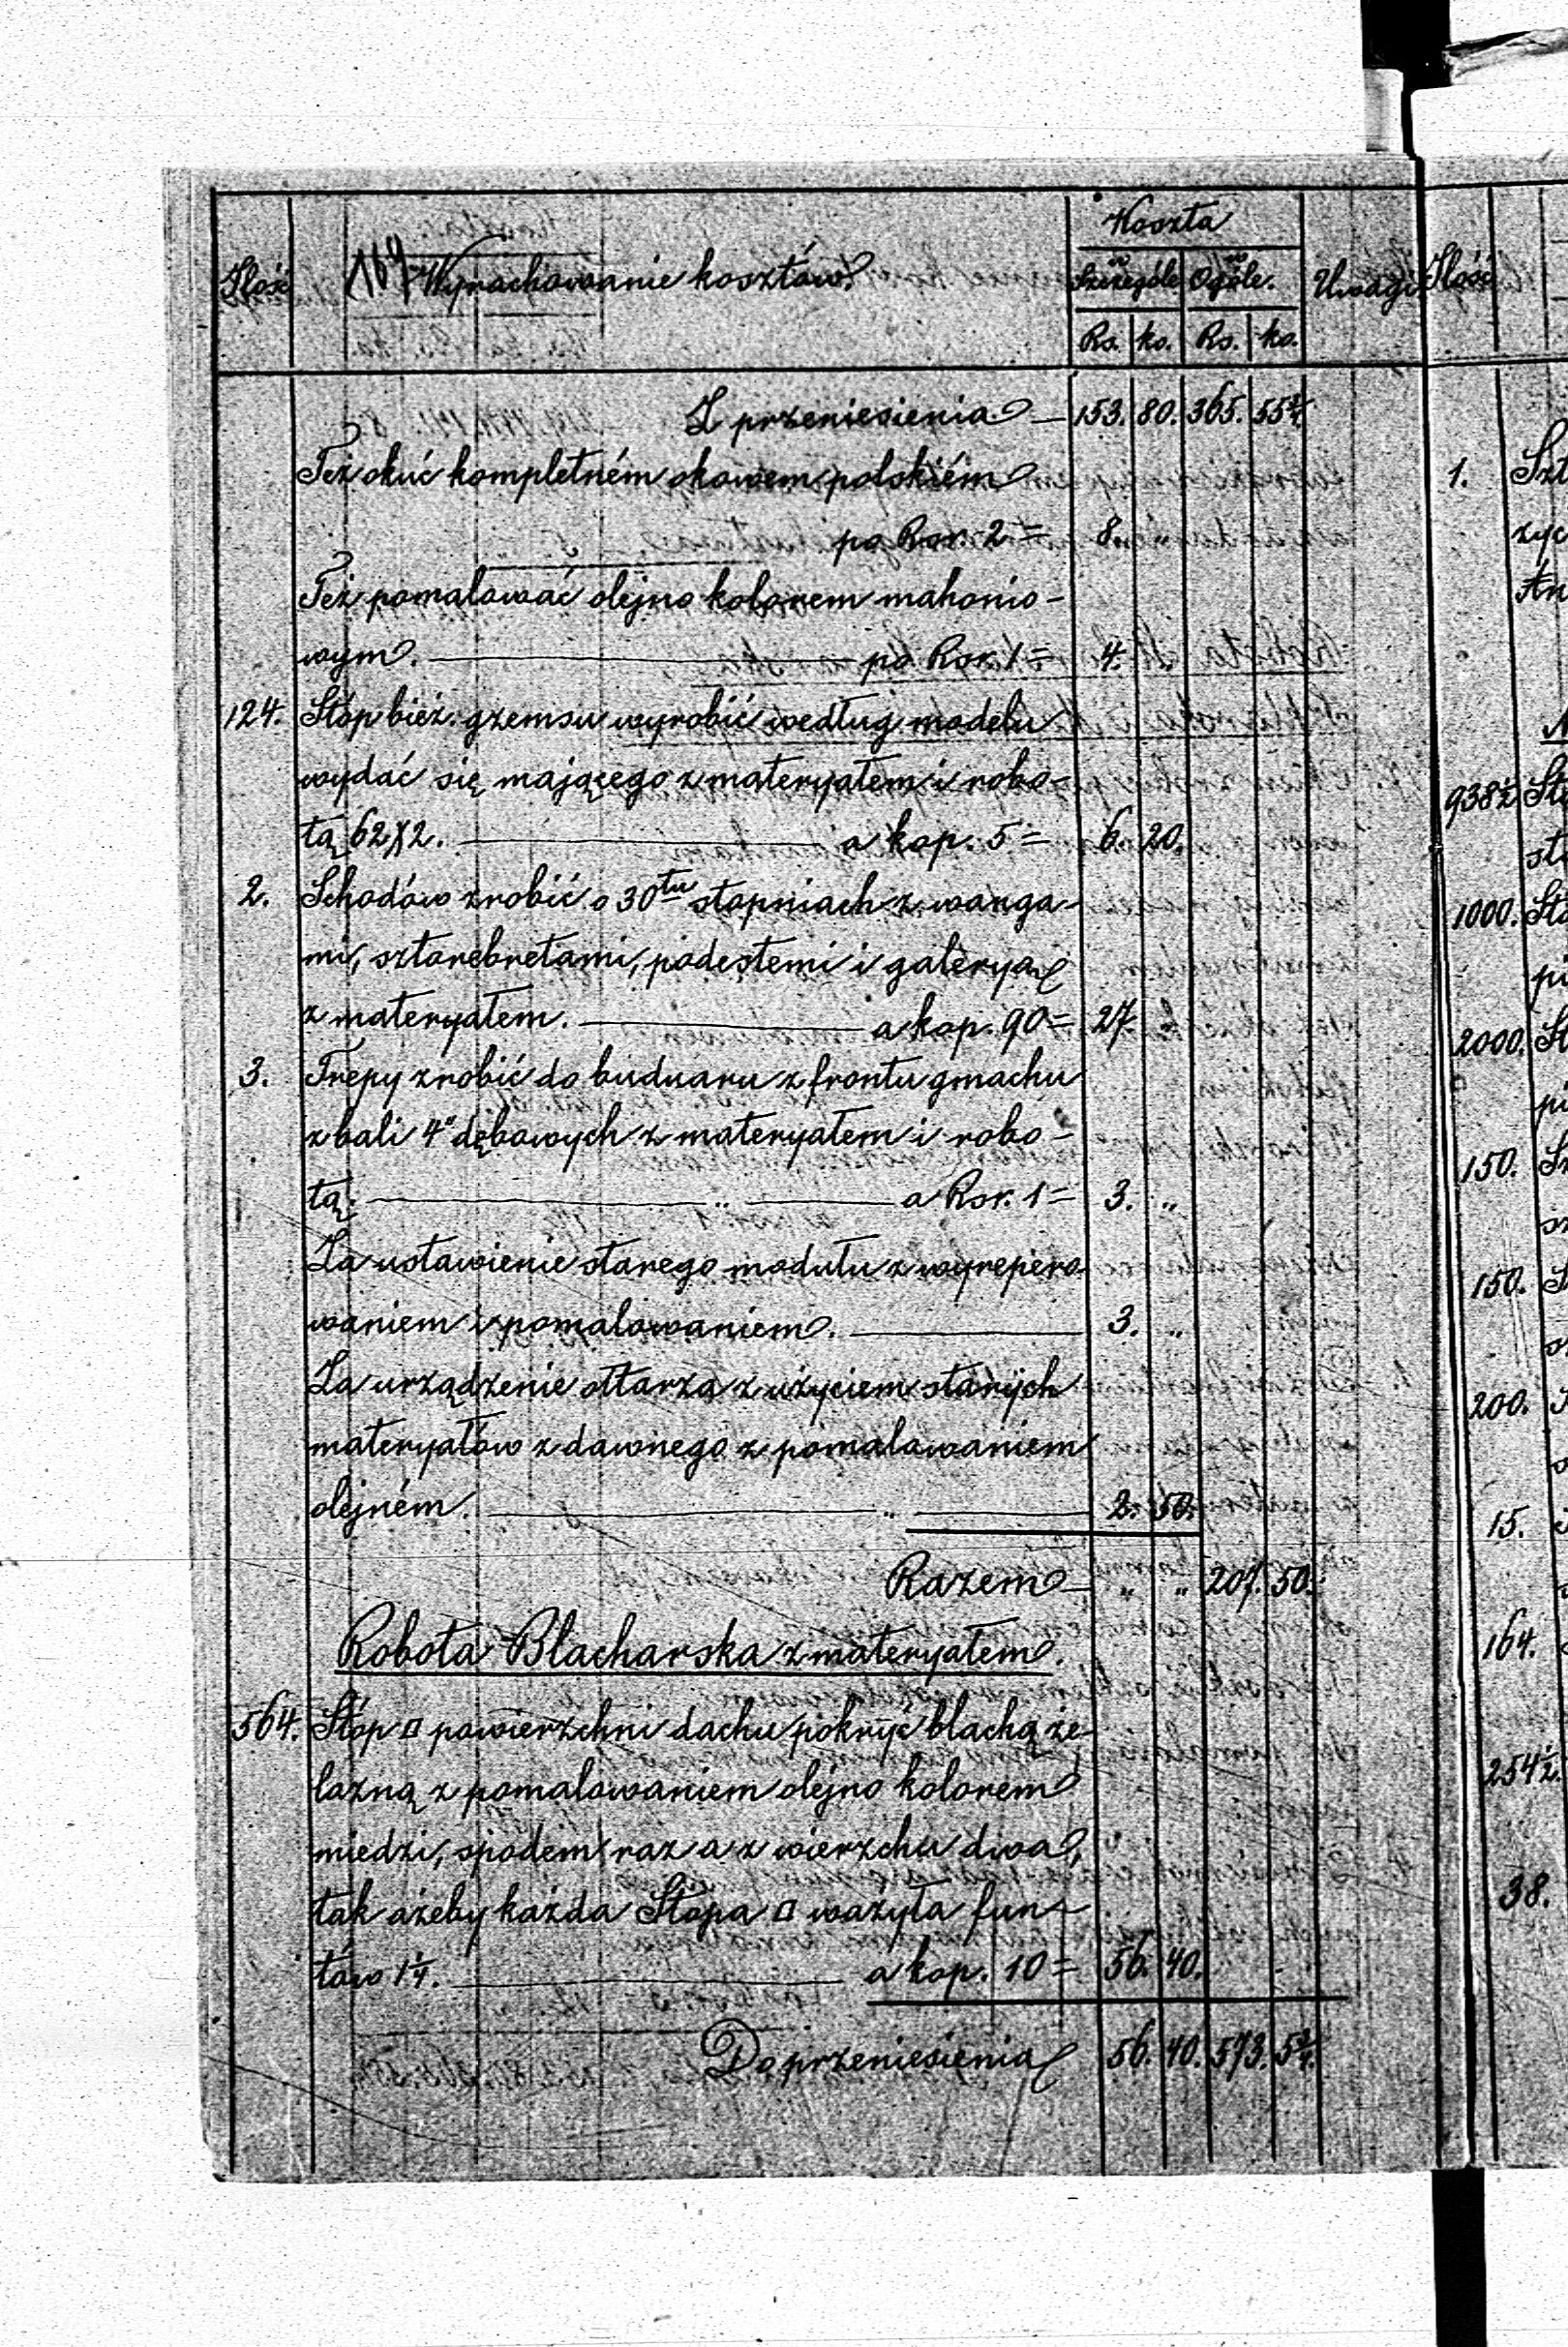 Koszta
Ilość 164 Wyrachowanie kosztów. w Szczególe w Ogóle. Uwagi Ilość
Rs. ko. Rs. ko.
Z przeniesienia — 153. 80. 365. 55¾
Też okuć kompletném okowem polskiém
po Rsr. 2 = 8. "
Też pomalować olejno kolorem mahonio-
wym. — po Rsr. 1 = 4.
124. Stóp bież. gzemsu wyrobić według modelu
wydać się mającego z materyałem i robo-
tą 62X2. — a kop. 5 = 6. 20.
2. Schodów zrobić o 30tu stopniach z wanga-
mi, sztorcbretami, podestemi i galeryą
z materyałem. — a kop. 90 = 27.
3. Trepy zrobić do buduaru z frontu gmachu
z bali 4" dębowych z materyałem i robo-
tą. — " — a Rsr. 1 = 3. "
Za ustawienie starego modułu z wyrepero-
waniem i pomalowaniem. — 3. "
Za urządzenie ołtarza z użyciem starych
materyałów z dawnego z pomalowaniem
olejném. — " — 2. 50.
Razem — " " 207. 50.
Robota Blacharska z materyałem.
564. Stóp □ powierzchni dachu pokryć blachą że-
lazną z pomalowaniem olejno kolorem
miedzi, spodem raz a z wierzchu dwa,
tak ażeby każda Stopa □ ważyła fun-
tów 1¼. — a kop. 10 = 56. 40.
Do przeniesienia 56. 40. 573. 5¾.
1. Szt
zyc
938½ St
1000. St
2000. St
150.
150.
200.
15.
164.
254½.
38.